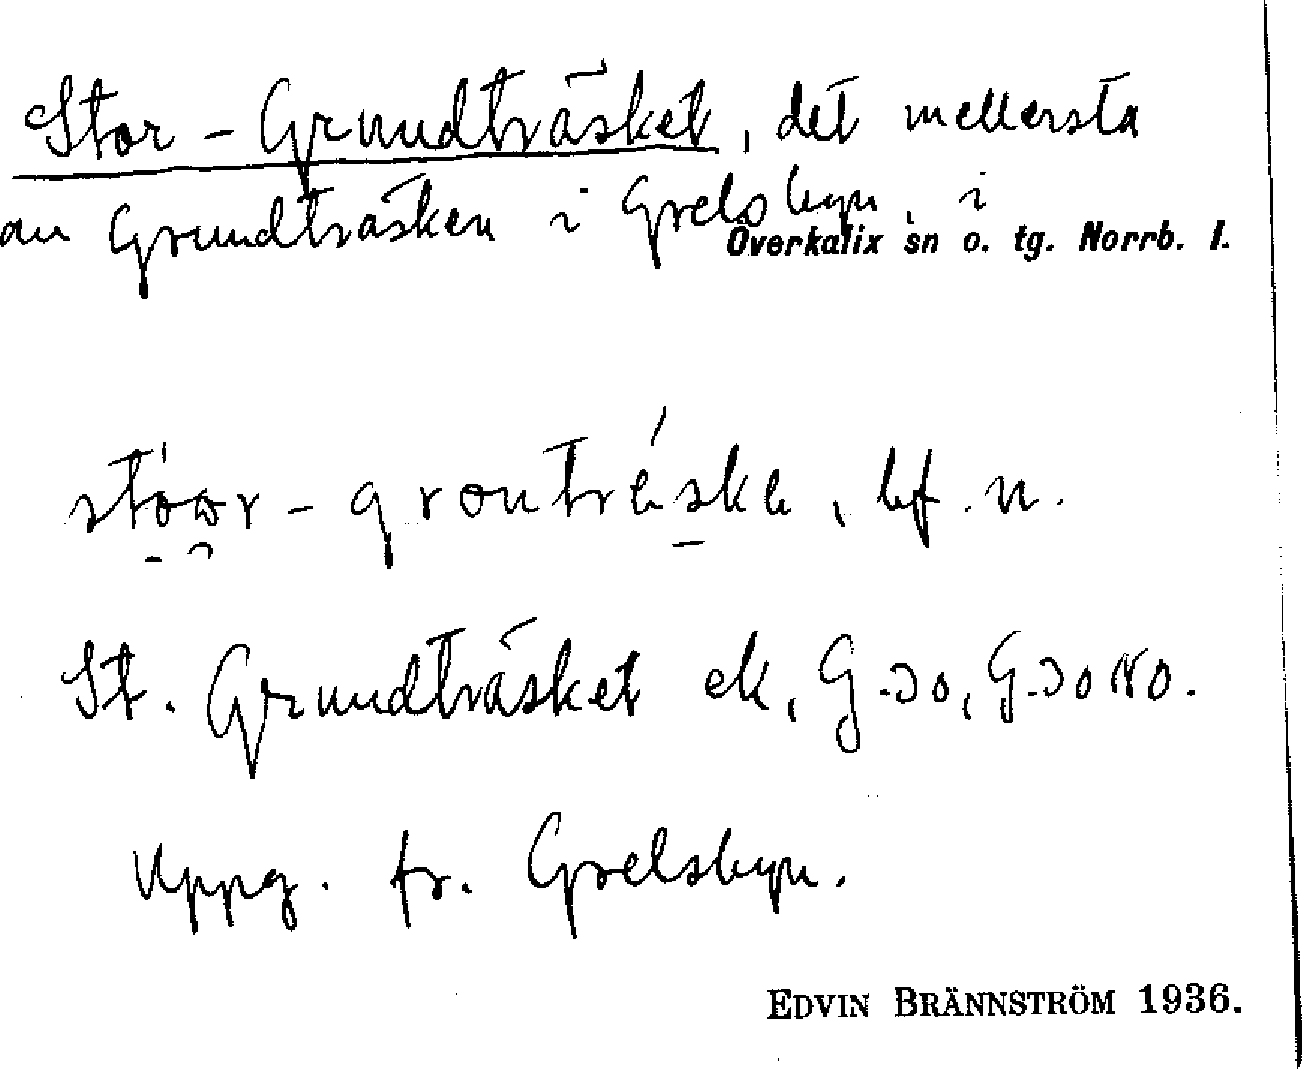 Stor-Grundträsket, det mellersta
av Grundträsken i Grelsbyn, i
Överkalix sn o. tg. Norrb. l.
stóωr-grontrèske, bf. n.
St. Grundträsket ek, G.30, G.30 NO.
Uppg. fr. Grelsbyn.
EDVIN BRÄNNSTRÖM 1936.